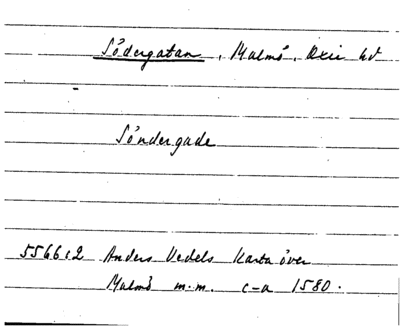 Södergatan, Malmö, Oxie hd
Söndergade
5566:2 Anders Vedels Karta över
Malmö m.m. c-a 1580.